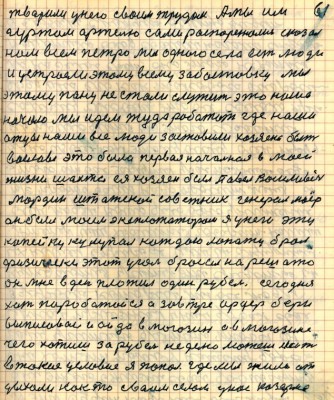 61
тварили унего своим трудом А мы им
друтим артелю сами распоренали сказал
ним всем петро мы одного села ест люди
и устроели этому всему забастовку мы
этому пану не стали служит это наша
начало мы идем туда работат где наши
отцы наши все люди заставили хозяена быт
это была первая началная в моей
жизни шахта ея хозяен бил Павел Василиевич
штатской советник генерал маёр
он бил моим эксплотатором я унего эту
копейку, купал каждою лопату брал
физически этот угол бросал на решато
он мне вден плотил один рубел. сегодня
хот паработайся а завтре ордер бери
выписовай и ойда в могозин а в могозине.
чего хотиш за рубел неделю можеш жит
в такие условие я попал где мы жили от
уихали как то сваим селом унас каждые